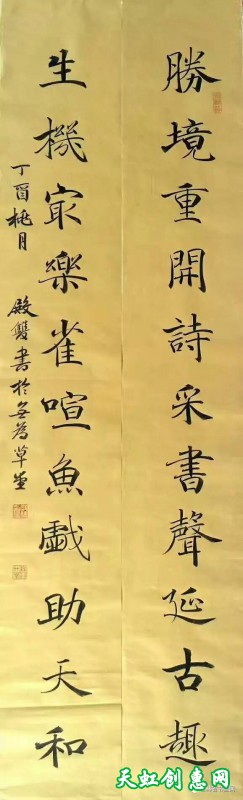 勝境重開詩采書聲延古趣
生機㝡樂雀喧魚戲助天和
丁酉桃月 殿雙書於無為草堂
天虹创惠网